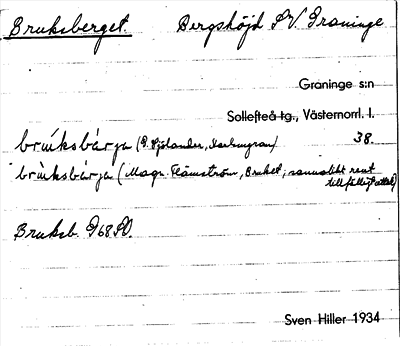 Bruksberget. Bergshöjd S.V. Graninge
Graninge s:n
Sollefteå tg., Västernorrl. l.
brùksbærja (G. Sjölander, 38.
brùksbærja (Magn. Flämström, Bruket, sannolikt rent
tillfälligt uttal)
Bruksb. G68SO.
Sven Hiller 1934